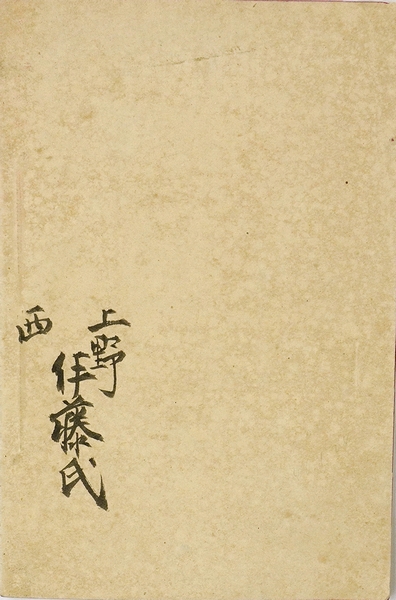 上野
伊藤氏
西